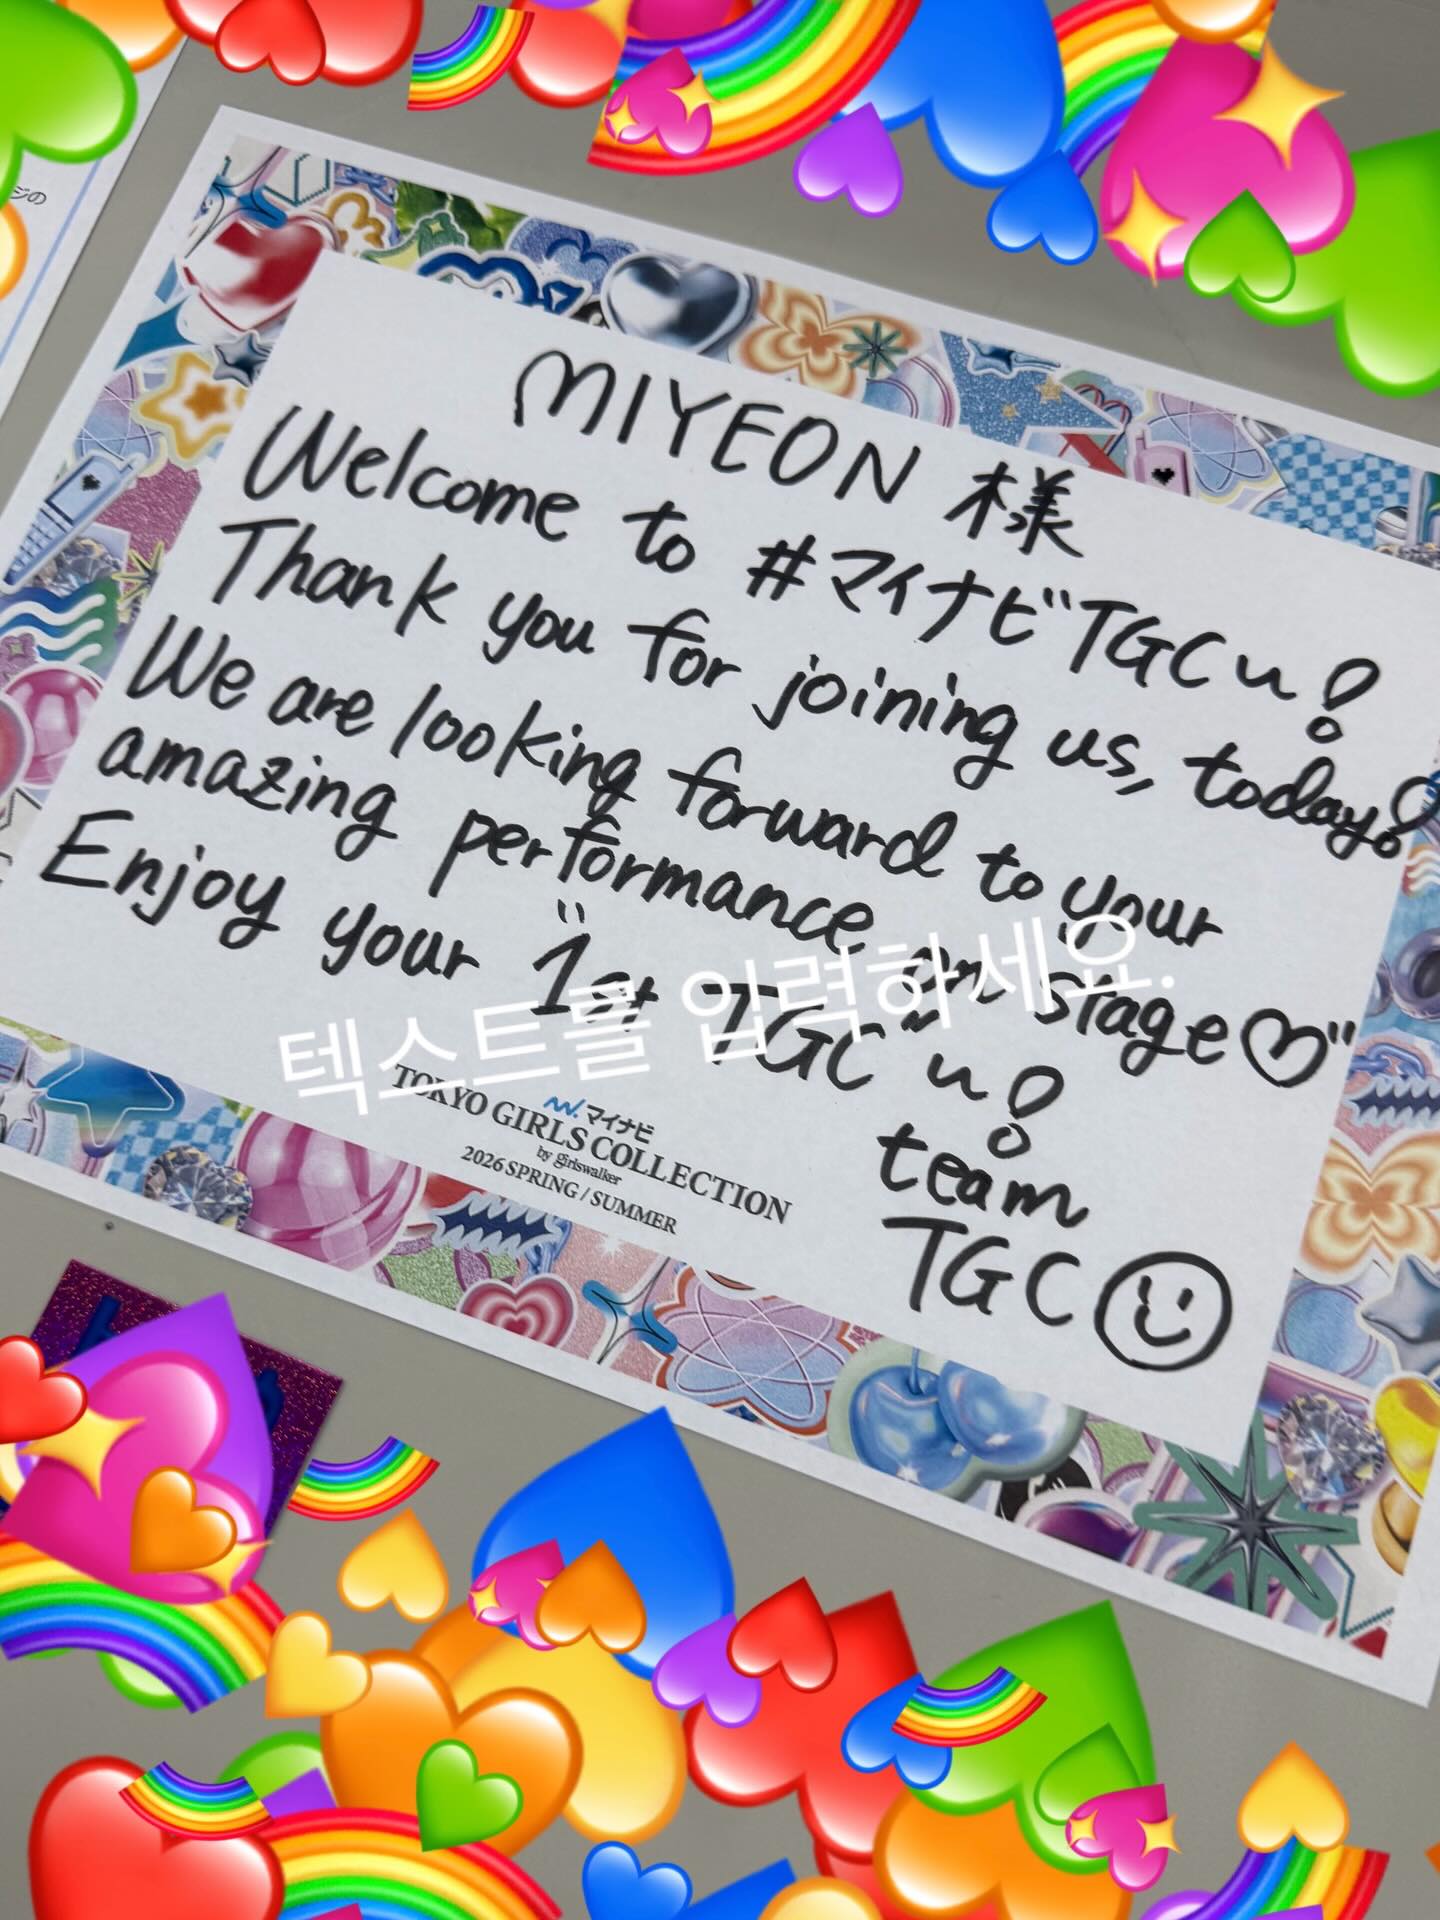 ジの
MIYEON 様
Welcome to #マイナビTGC〜!
Thank you for joining us, today!
We are looking forward to your
amazing performance on stage♡"
Enjoy your "1st TGC"〜!
텍스트를 입력하세요.
マイナビ
TOKYO GIRLS COLLECTION
by girlswalker
2026 SPRING / SUMMER
team
TGC